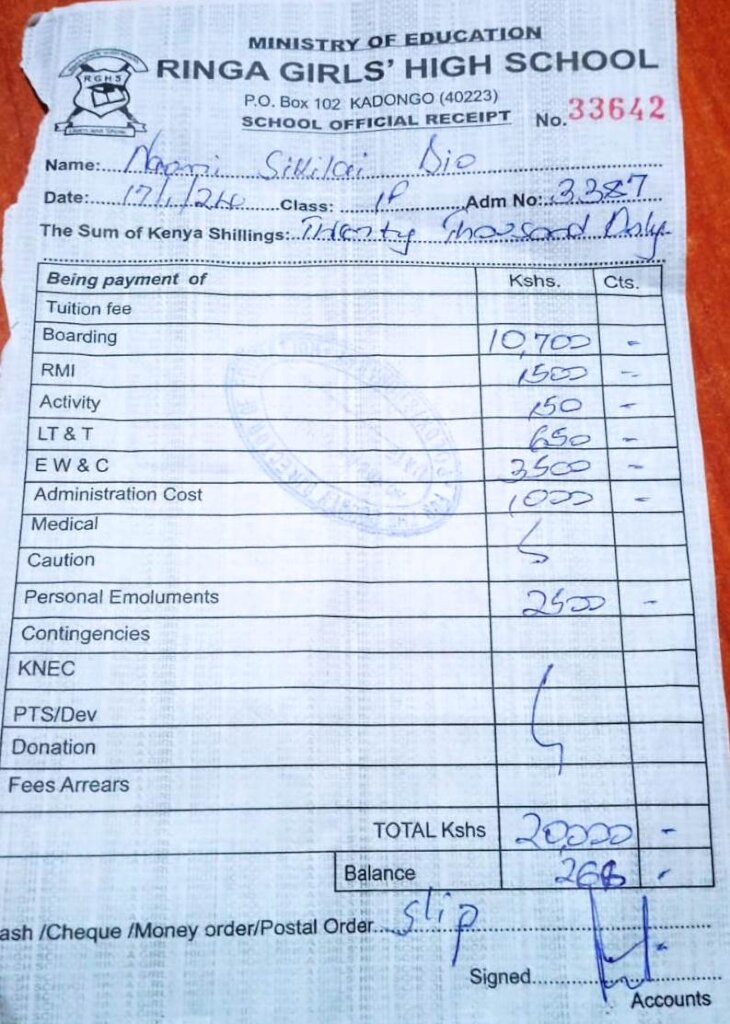 MINISTRY OF EDUCATION
RGHS
RINGA GIRLS' HIGH SCHOOL
P.O. Box 102 KADONGO (40223)
SCHOOL OFFICIAL RECEIPT No. 33642
Name: Naomi
Date: 17/1/24 Class: 1P Adm No: 3387
The Sum of Kenya Shillings: Twenty Thousand Only
Being payment of Kshs. Cts.
Tuition fee
Boarding 10,700 -
RMI 1500 -
Activity 150 -
LT & T 650 -
E W & C 3500 -
Administration Cost 1000 -
Medical
Caution
Personal Emoluments 2500 -
Contingencies
KNEC
PTS/Dev
Donation
Fees Arrears
TOTAL Kshs 20,000 -
Balance -
ash /Cheque /Money order/Postal Order slip
Signed
Accounts